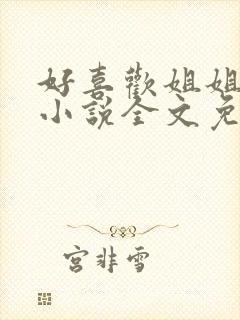 好喜歡姐姐
小說全文免
宮非雪